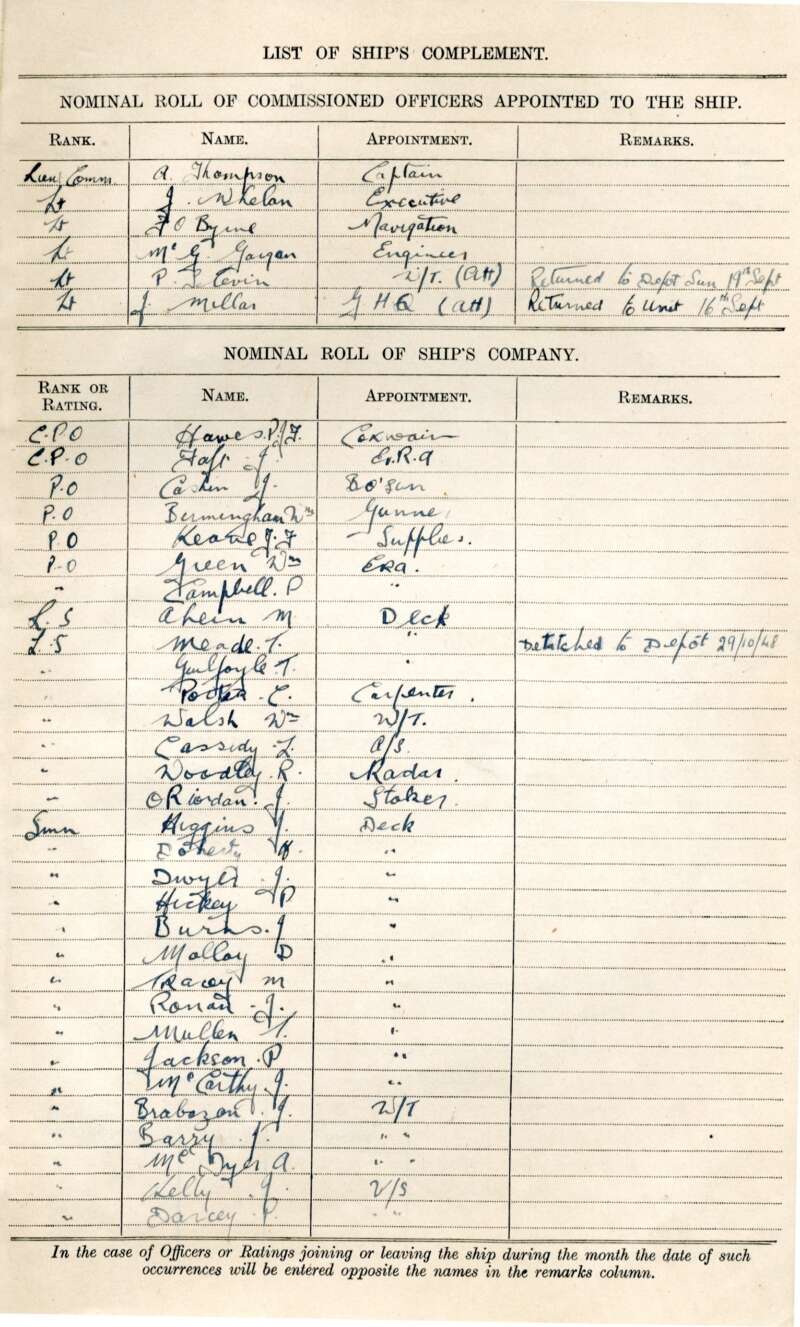 LIST OF SHIP'S COMPLEMENT.
NOMINAL ROLL OF COMMISSIONED OFFICERS APPOINTED TO THE SHIP.
RANK. NAME. APPOINTMENT. REMARKS.
Lieu/Comm. A. Thompson Captain
Lt J. Whelan Executive
Lt F O Byrne Navigation
Lt Mc G. Engineer
Lt P. W/T. (Att) Returned to Depot Sun 19th Sept
Lt J. Millar G H Q (Att) Returned to Unit 16th Sept
NOMINAL ROLL OF SHIP'S COMPANY.
RANK OR RATING. NAME. APPOINTMENT. REMARKS.
C.P.O Hawes. P.J.F. Coxwain
C.P.O J. E.R.A
P.O Cashin J. Bo'sun
P.O Bermingham Wm Gunner
P.O Keane J.F Supplies.
P.O Green Wm ERA.
" Campbell. P "
L.S Ahern M Deck
L.S Meade. T. " Detatched to Depôt 29/10/48
" Guilfoyle. T. "
Porter. C. Carpenter.
" Walsh Wm W/T.
" Cassidy. L. A/S.
" Woodley. R. Radar.
" O Riordan. J. Stoker.
Smn Higgins J. Deck
" Doherty H. "
" Dwyer J. "
" Hickey P "
" Burns. J "
" Molloy D "
" Tracey M "
" Ronan. J. "
" Mullen T. "
" Jackson. P "
" McCarthy. J. "
" Brabazon. J. W/T
" Barry J. " "
" Mc Dyer A. " "
" Kelly J. V/S
" Darcey P. " "
In the case of Officers or Ratings joining or leaving the ship during the month the date of such
occurrences will be entered opposite the names in the remarks column.